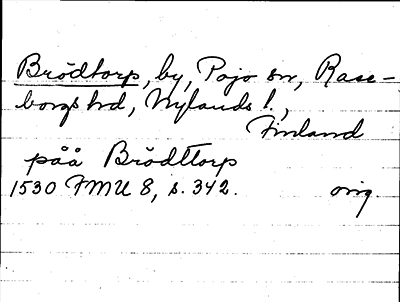 Brödtorp, by, Pojo sn, Rase-
borgs hd, Nylands l.,
Finland
på̊å Brödttorp
1530 FMU 8, s. 342. orig.